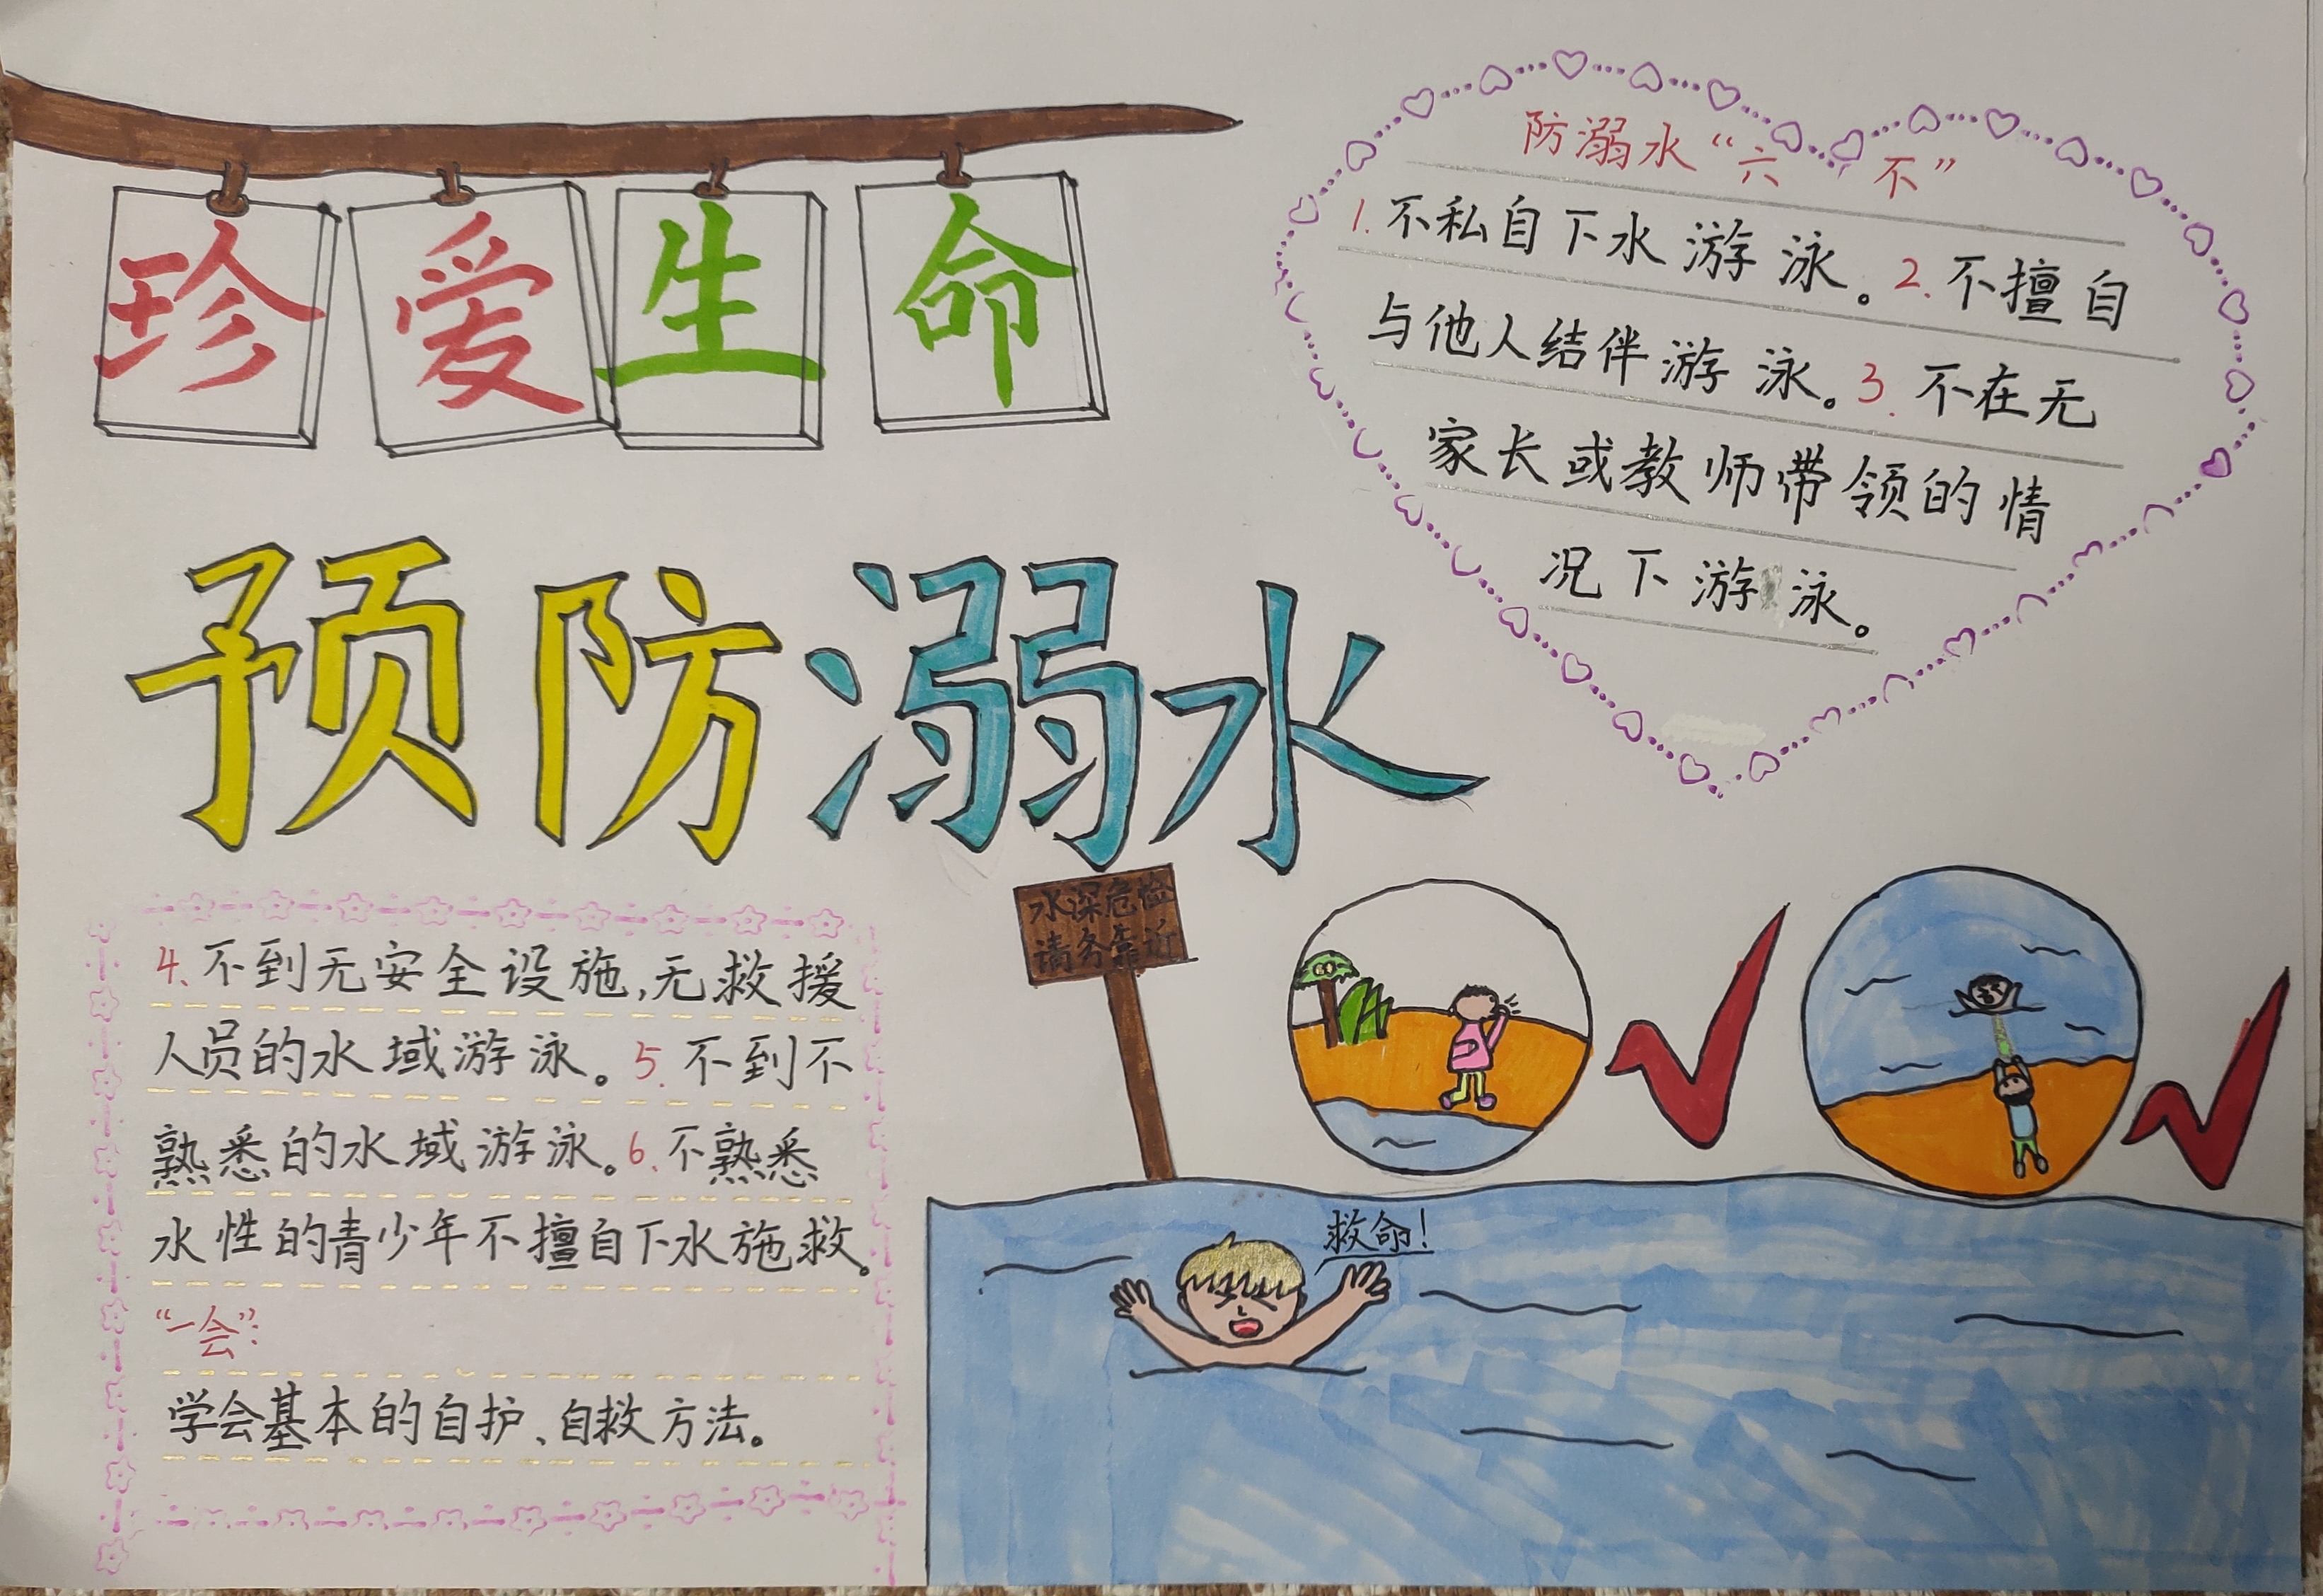 珍爱生命
预防溺水
防溺水“六不”
1.不私自下水游泳。2.不擅自
与他人结伴游泳。3.不在无
家长或教师带领的情
况下游泳。
4.不到无安全设施,无救援
人员的水域游泳。5.不到不
熟悉的水域游泳。6.不熟悉
水性的青少年不擅自下水施救。
“一会”:
学会基本的自护、自救方法。
水深危险
请务靠近
救命!